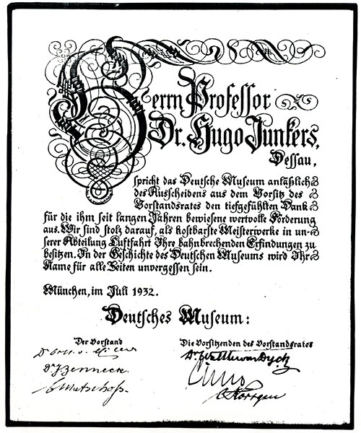 Herrn Professor
Dr. Hugo Junkers,
Dessau,
spricht das Deutsche Museum anläßlich
des Ausscheidens aus dem Vorsitz des
Vorstandsrates den tiefgefühlten Dank
für die ihm seit langen Jahren bewiesene wertvolle Förderung
aus. Wir sind stolz darauf, als kostbarste Meisterwerke in un-
serer Abteilung Luftfahrt Ihre bahnbrechenden Erfindungen zu
besitzen. In der Geschichte des Deutschen Museums wird Ihr
Name für alle Zeiten unvergessen sein.
München, im Juli 1932.
Deutsches Museum:
Der Vorstand
Die Vorsitzenden des Vorstandsrates
Dr Zenneck
C Matschoß